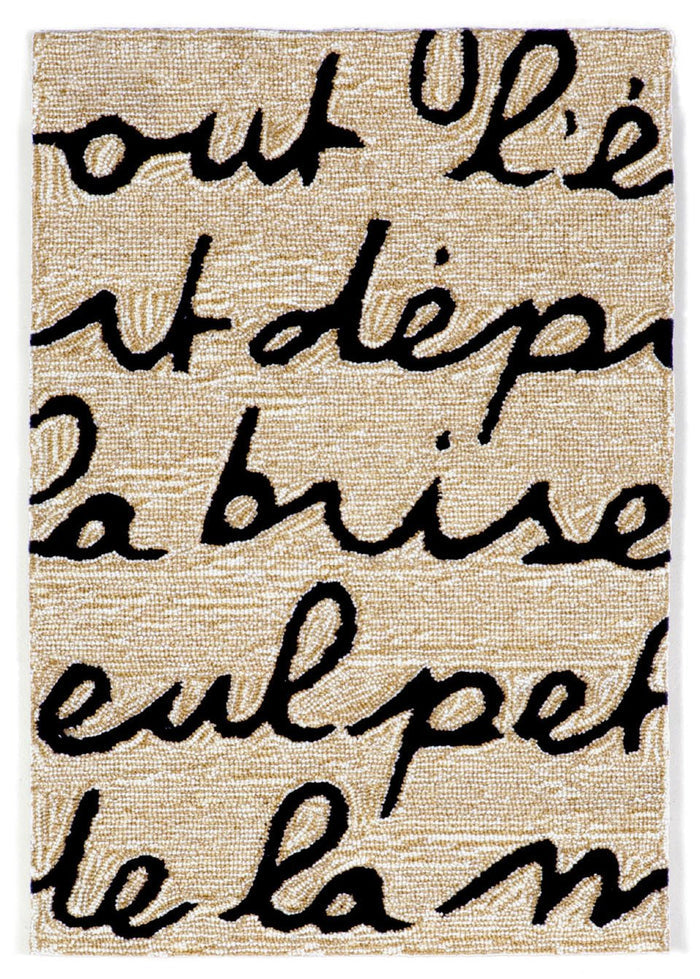 out l'é
it dép
la brise
eul pet
de la m